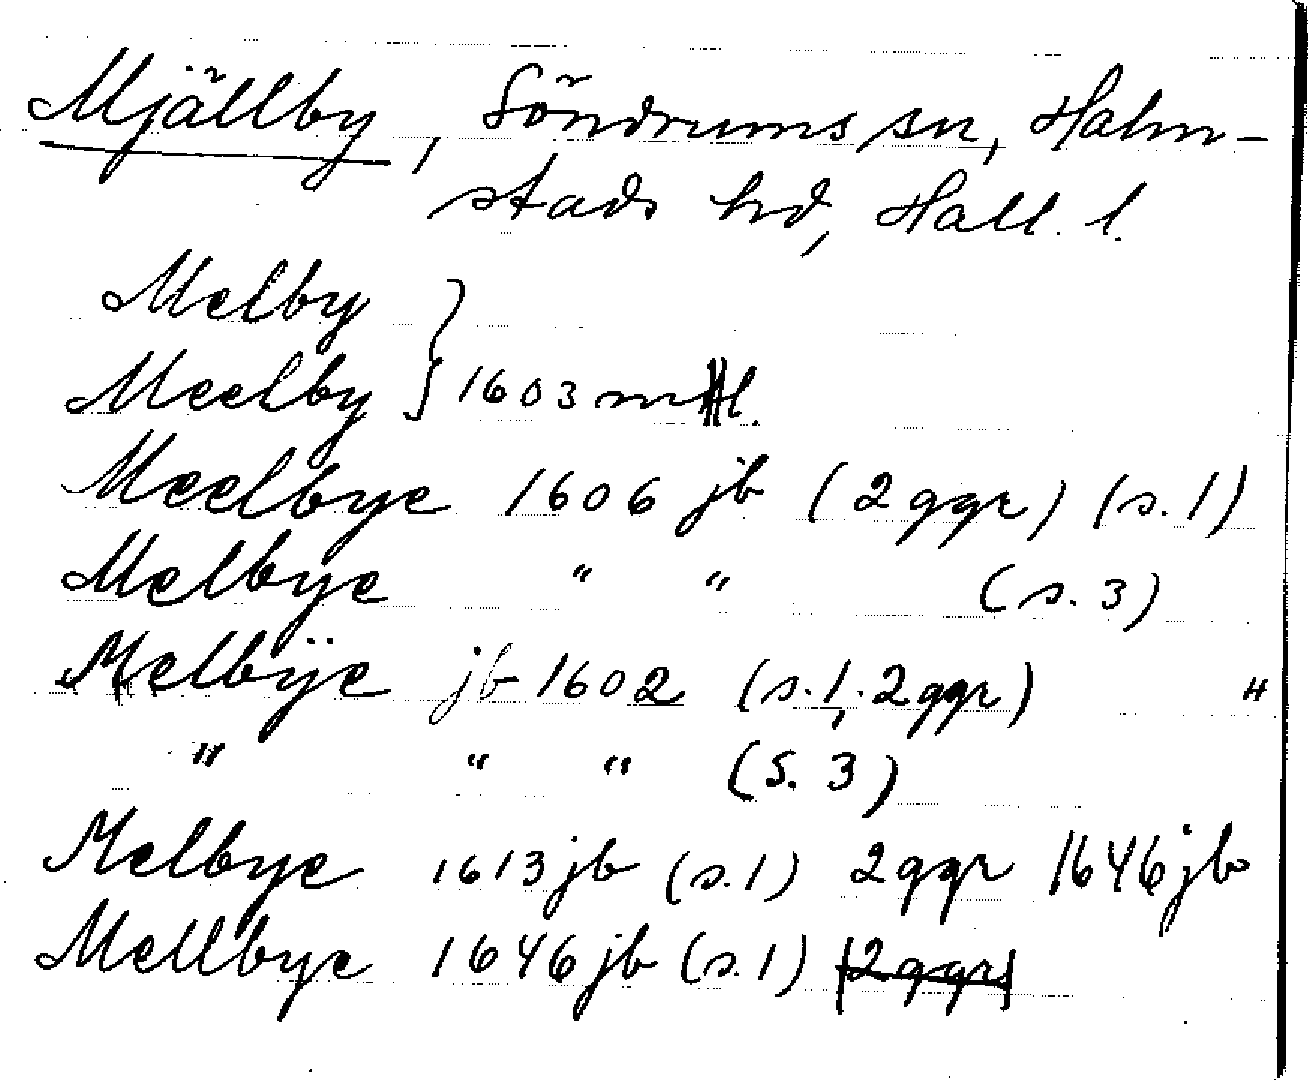 Mjällby, Söndrums sn, Halm-
stads hd, Hall. l.
Melby
Meelby } 1603 mtl.
Meelbye 1606 jb (2 ggr) (s. 1)
Melbye " " (s. 3)
Melbÿe jb 1602 (s. 1, 2 ggr) "
" " " (s. 3)
Melbye 1613 jb (s. 1) 2 ggr 1646 jb
Mellbye 1646 jb (s. 1) (2 ggr)